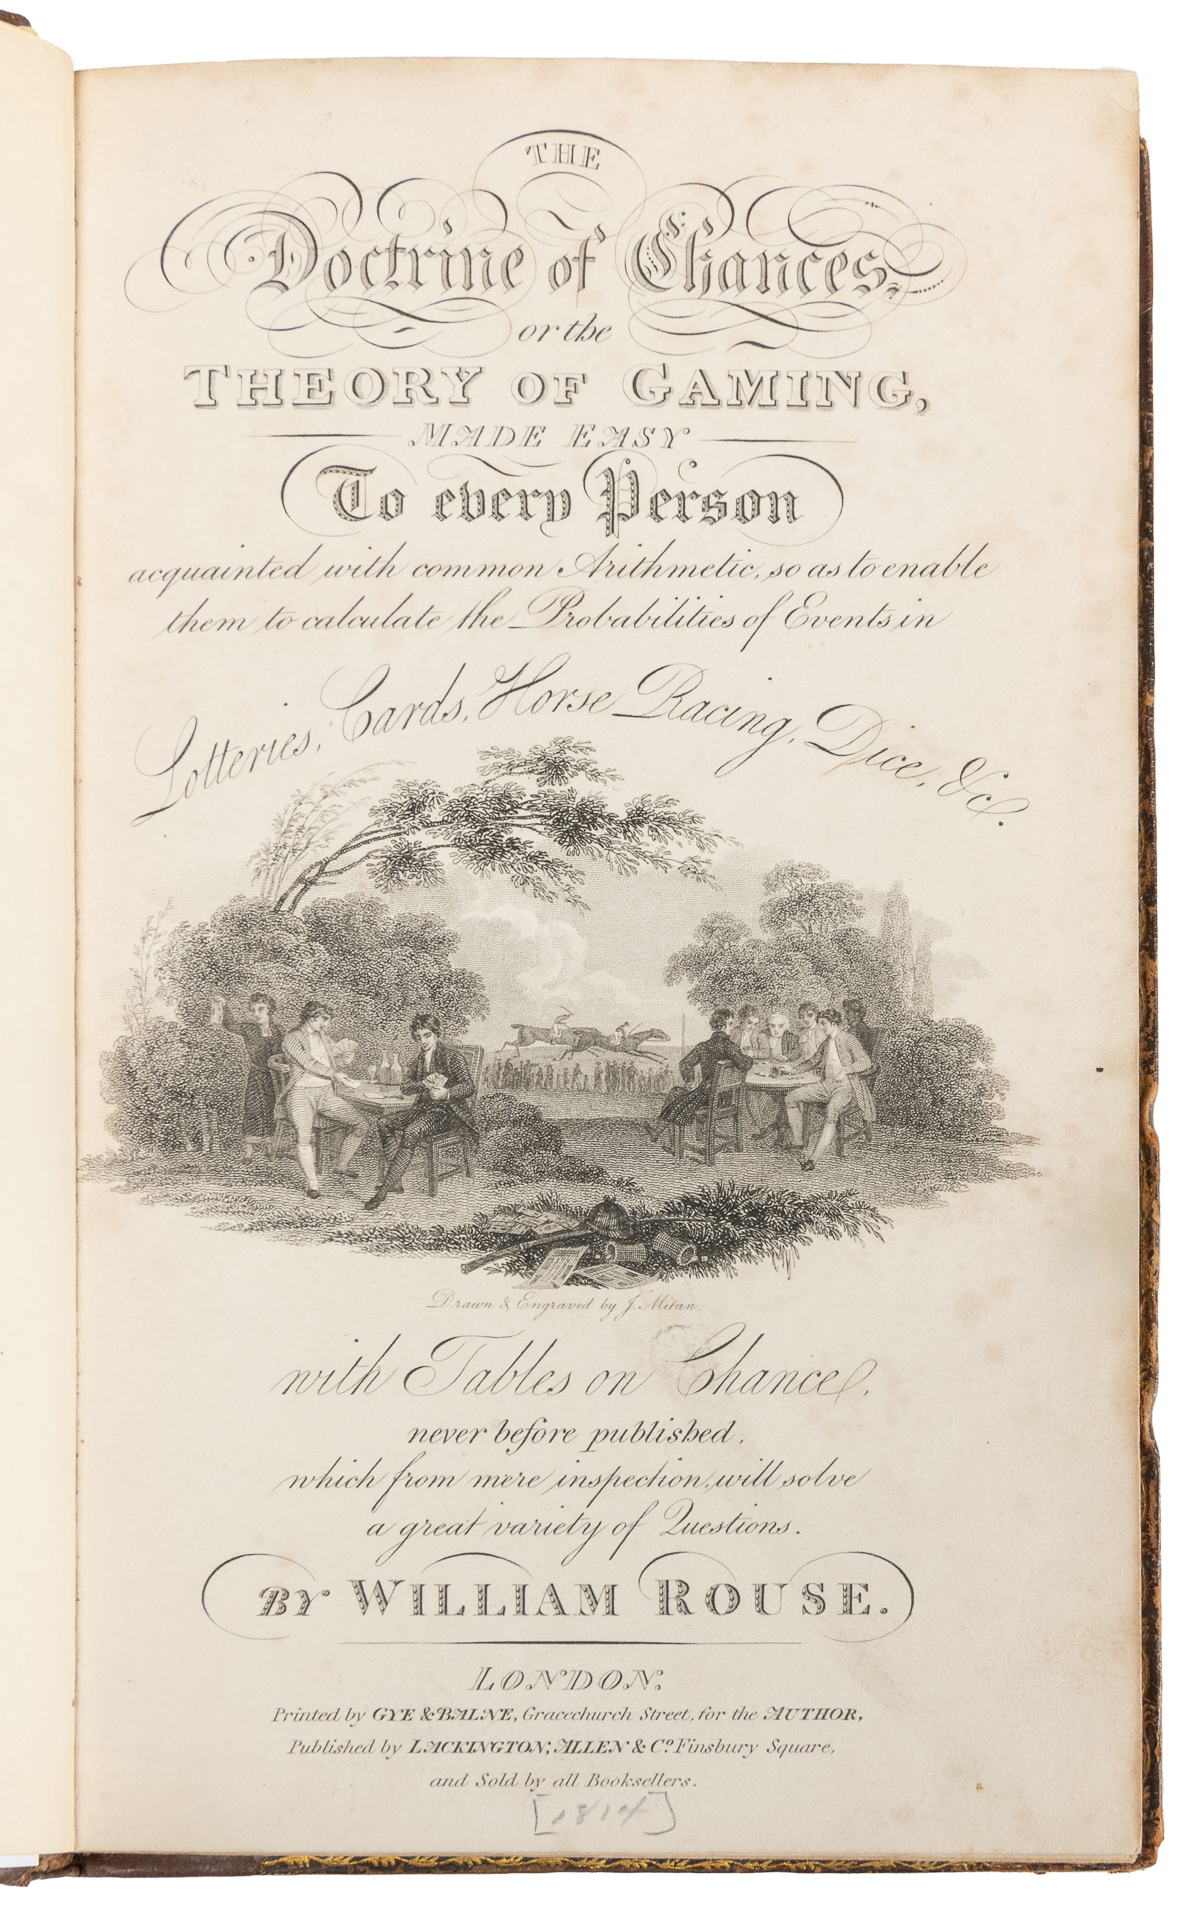 THE
Doctrine of Chances,
or the
THEORY OF GAMING,
MADE EASY
To every Person
acquainted with common Arithmetic, so as to enable
them to calculate the Probabilities of Events in
Lotteries, Cards, Horse Racing, Dice, &c.
Drawn & Engraved by J. Mitan.
with Tables on Chance,
never before published,
which from mere inspection, will solve
a great variety of Questions.
BY WILLIAM ROUSE.
LONDON:
Printed by GYE & BALNE, Gracechurch Street, for the AUTHOR,
Published by LACKINGTON, ALLEN & Co. Finsbury Square,
and Sold by all Booksellers.
[1814]